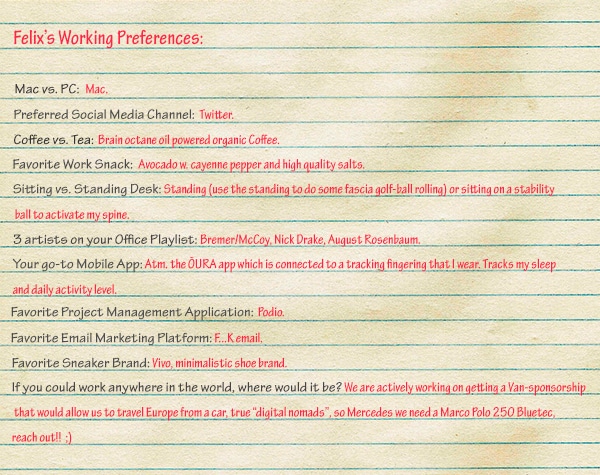 Felix's Working Preferences:
Mac vs. PC: Mac.
Preferred Social Media Channel: Twitter.
Coffee vs. Tea: Brain octane oil powered organic Coffee.
Favorite Work Snack: Avocado w. cayenne pepper and high quality salts.
Sitting vs. Standing Desk: Standing (use the standing to do some fascia golf-ball rolling) or sitting on a stability
ball to activate my spine.
3 artists on your Office Playlist: Bremer/McCoy, Nick Drake, August Rosenbaum.
Your go-to Mobile App: Atm. the ŌURA app which is connected to a tracking fingering that I wear. Tracks my sleep
and daily activity level.
Favorite Project Management Application: Podio.
Favorite Email Marketing Platform: F...K email.
Favorite Sneaker Brand: Vivo, minimalistic shoe brand.
If you could work anywhere in the world, where would it be? We are actively working on getting a Van-sponsorship
that would allow us to travel Europe from a car, true "digital nomads", so Mercedes we need a Marco Polo 250 Bluetec,
reach out!! ;)